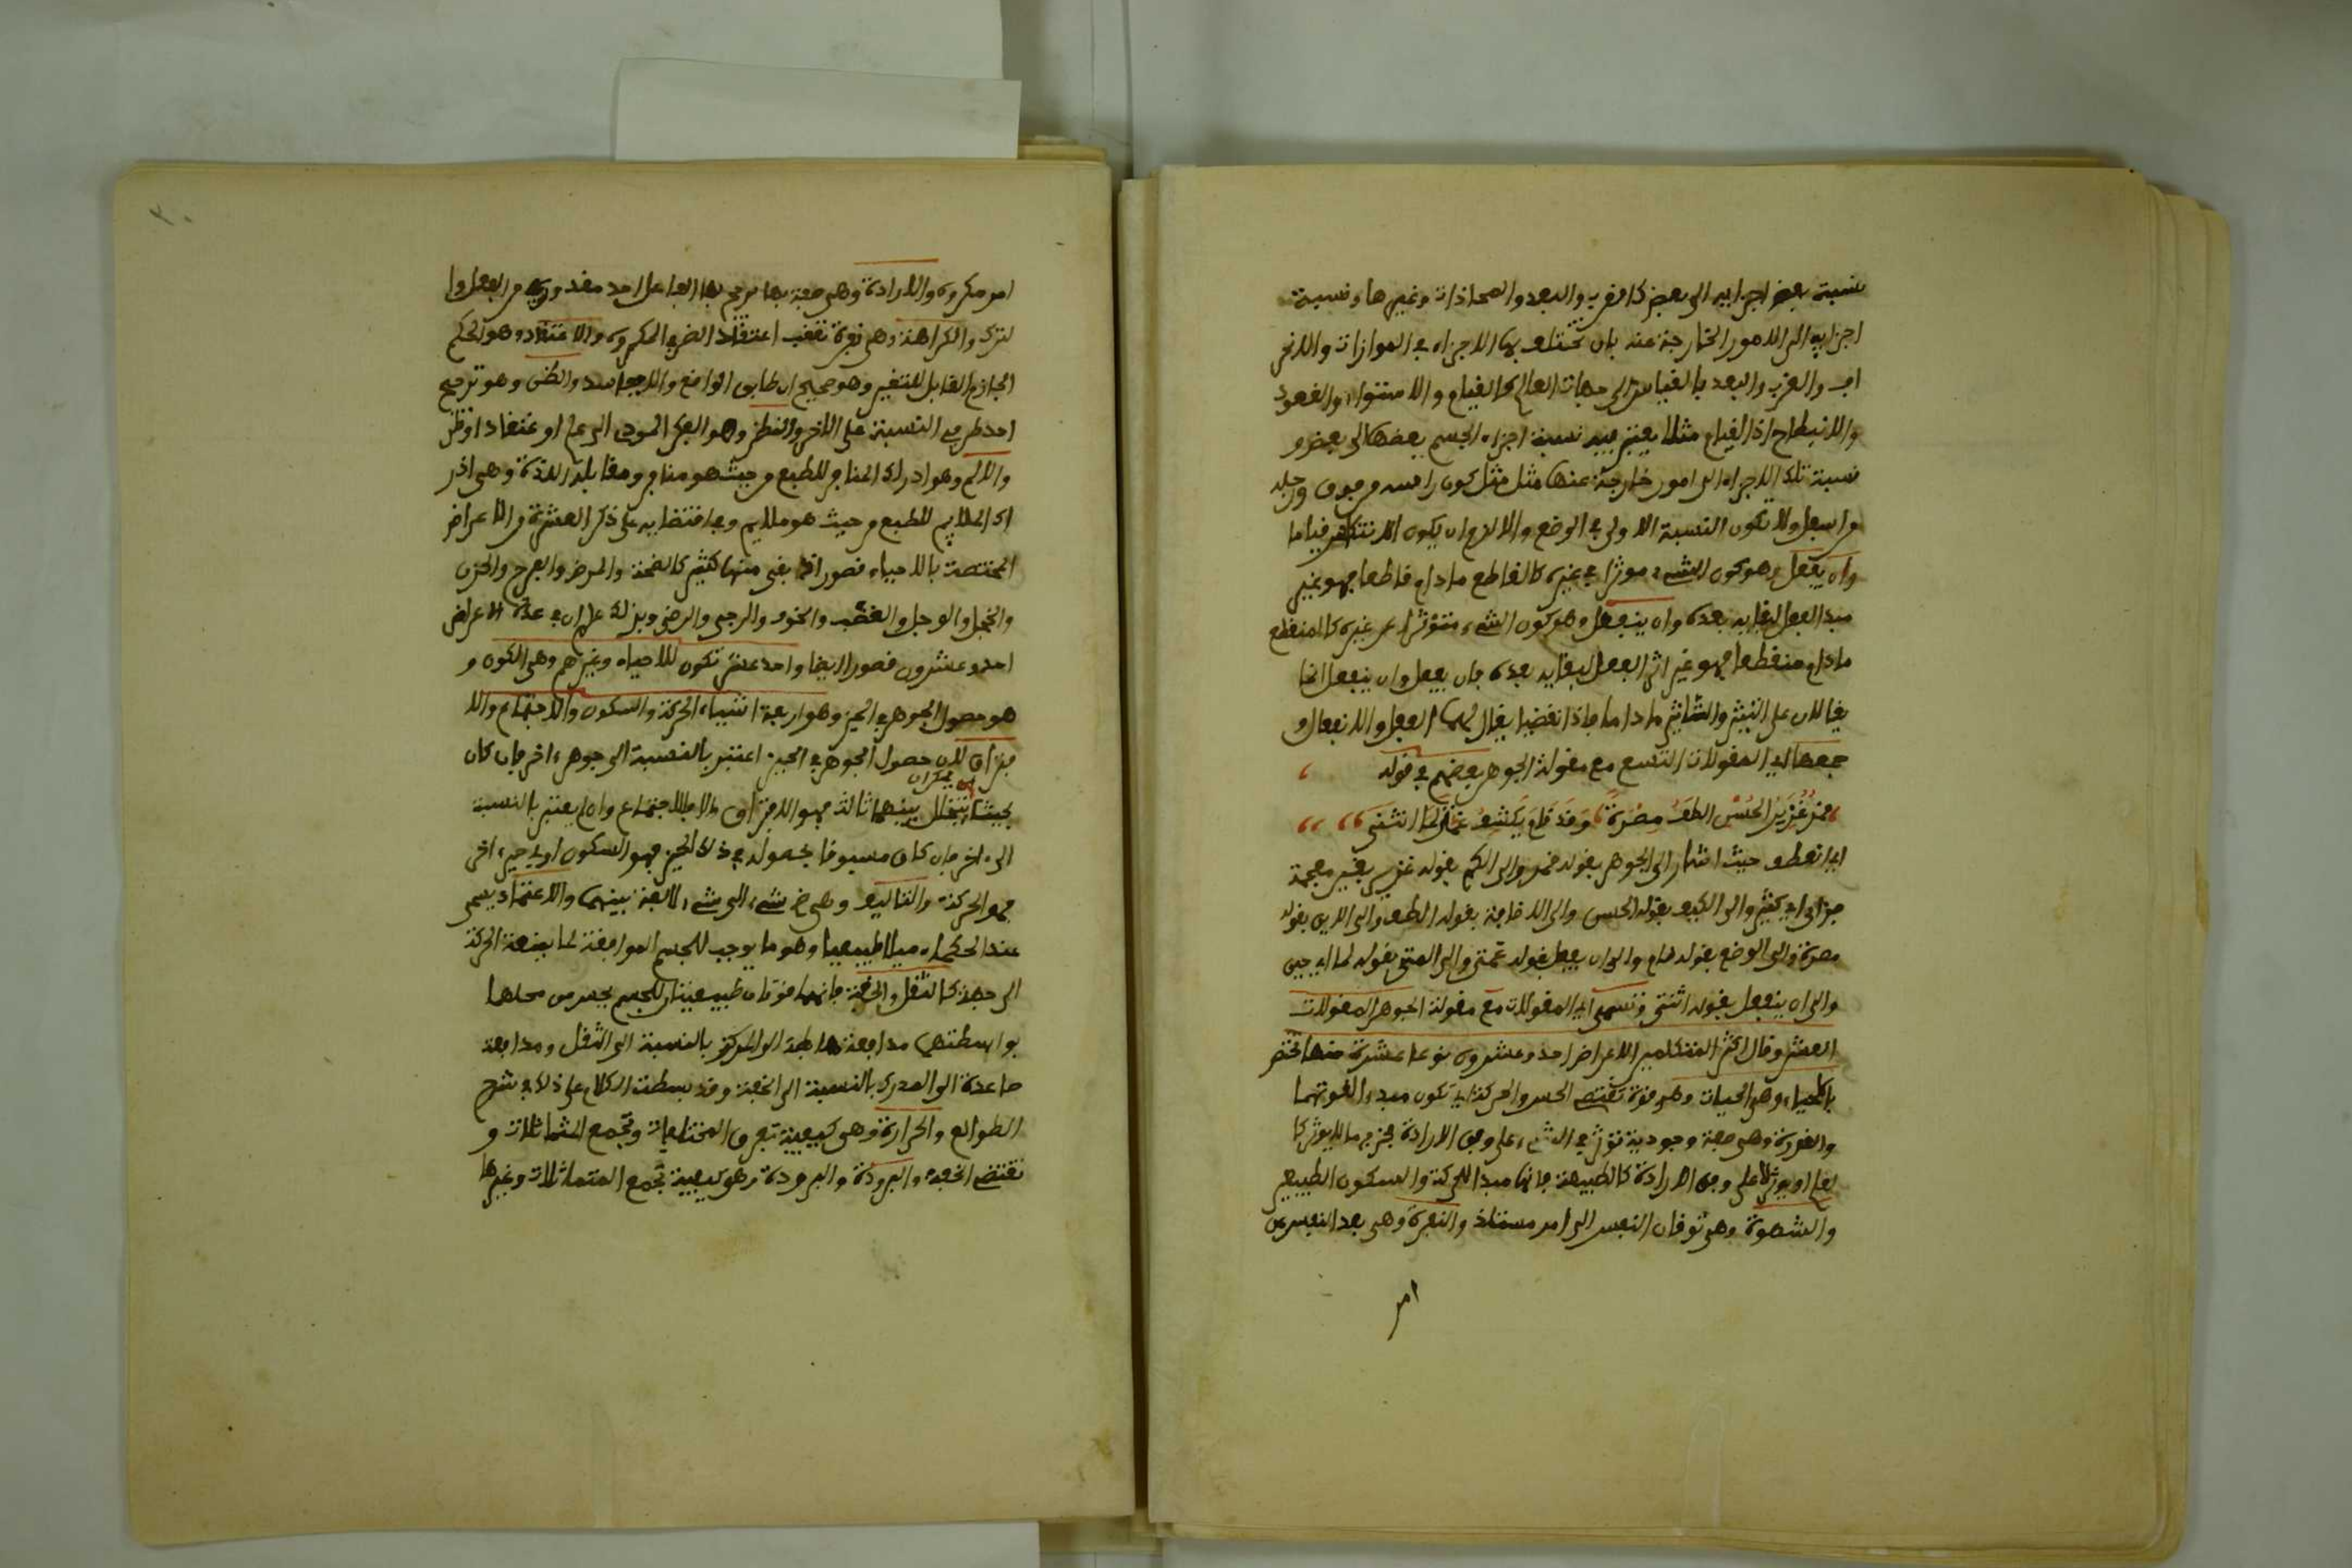 نسبة بعض اجزايه الى بعض كالقرب والبعد والمحاذات وغيرها ونسبة
اجزايه الى الامور الخارجة عنه بان تختلف بها الاجزاء في الموازات والانحر
اف والقرب والبعد بالقياس الى جهات العالم كالقيام والاستواء والقعود
والانبطاح اذ القيام مثلا يعتبر فيه نسبة اجزاء الجسم بعضها الى بعض و
نسبة تلك الاجزاء الى امور خارجة عنها مثل كون راسه من فوق ورجله
من اسفل ولا تكون النسبة الاولى في الوضع والا لزم ان يكون الانتكاس قياما
وان يفعل وهو كون الشيء موثرا في غيره كالقاطع مادام قاطعا فهو غير
مبدا الفعل لبقايه بعده وان ينفعل وهو كون الشيء متوثرا عن غيره كالمنقطع
مادام منقطعا فهو غير اثر الفعل لبقايه بعده فان يفعل وان ينفعل انما
يقالان على التيثير والتاثر ماداما فاذا انقضيا يقال لهما الفعل والانفعال و
جمعها اي المقولات التسع مع مقولة الجوهر بعضهم في قوله
قمر غزير الحسن الطف مصره وقد قام يكشف غمتي لما انثنى
اي انعطف حيث اشار الى الجوهر بقوله قمر والى الكم بقوله غزير بغين معجمة
فزاي اي كثير والى الكيف بقوله الحسن والى الاضافة بقوله الطف والى الاين بقوله
مصره والى الوضع بقوله قام والى ان يفعل بقوله غمتي والى المتى بقوله لما اي حين
والى ان ينفعل بقوله انثنى وتسمى اي المقولات مع مقولة الجوهر المقولات
العشر وقال اكثر المتكلمين الاعراض احد وعشرون نوعا عشرة منها تختص
بالاحياء وهي الحيات وهي قوة تقتضي الحس والحركة اي تكون مبدء القوتهما
والقدرة وهي صفة وجودية توثر في الشيء على وفق الارادة فخرج ما لا يوثر كا
لعلم او يوثر لا على وفق الارادة كالطبيعة فانها مبدا للحركة والسكون الطبيعي
والشهوة وهي توقان النفس الى امر مستلذ والنفرة وهي بعد النفس عن
امر
٢٠
امر مكروه والارادة وهي صفة بها يرجح بها الفاعل احد مقدوريه من الفعل وا
لترك والكراهة وهي نفرة تعقب اعتقاد الضر في المكروه والاعتقاد وهو الحكم
الجازم القابل للتغير وهو صحيح ان طابق الواقع والا ففاسد والظن وهو ترجيح
احد طرفي النسبة على الاخر والنظر وهو الفكر المودي الى علم او اعتقاد او ظن
والالم وهو ادراك المنافر للطبع من حيث هو منافر ومقابله اللذة وهي ادر
اك الملايم للطبع من حيث هو ملايم وفي اقتضايه على ذكر العشرة من الاعراض
المختصة بالاحياء قصور اذ بقي منها كثير كالصحة والمرض والفرح والحزن
والخجل والوجل والغضب والخوف والرجى والرضى وبذلك علم ان في عده الاعراض
احد وعشرون قصور ايضا واحد عشر تكون للاحياء وغيرهم وهي الكون و
هو حصول الجوهر في الحيز وهو اربعة اشياء الحركة والسكون والاجتماع والا
فتراق لان حصول الجوهر في الحيز ان اعتبر بالنسبة الى جوهر اخر فان كان
بحيث يمكن ان يتخلل بينهما ثالث فهو الافتراق والا فالاجتماع وان لم يعتبر بالنسبة
الى اخر فان كان مسبوقا بحصوله في ذلك الحيز فهو السكون او في حيز اخر
فهو الحركة والتاليف وهي ضم شيء الى شيء لالفة بينهما والاعتماد يسمى
عند الحكماء ميلا طبيعيا وهو ما يوجب للجسم الموافقة لما يمنعه الحركة
الى جهة كالثقل والخفة فانهما قوتان طبيعيتان للجسم يحس من محلها
بواسطتهما مدافعة هابطة الى المركز بالنسبة الى الثقل ومدافعة
صاعدة الى المدرك بالنسبة الى الخفة وقد بسطت الكلام على ذلك في شرح
الطوالع والحرارة وهي كيفية تفرق المختلفات وتجمع المتماثلات و
تقتضي الخفة والبرودة والبرودة وهو كيفية تجمع المتماثلات وغيرها